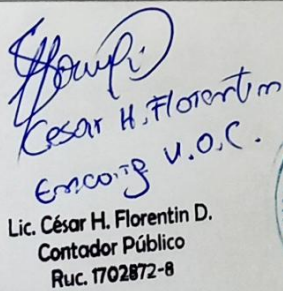 Cesar H. Florentin
U.O.C.
Lic. César H. Florentin D.
Contador Público
Ruc. 1702872-8